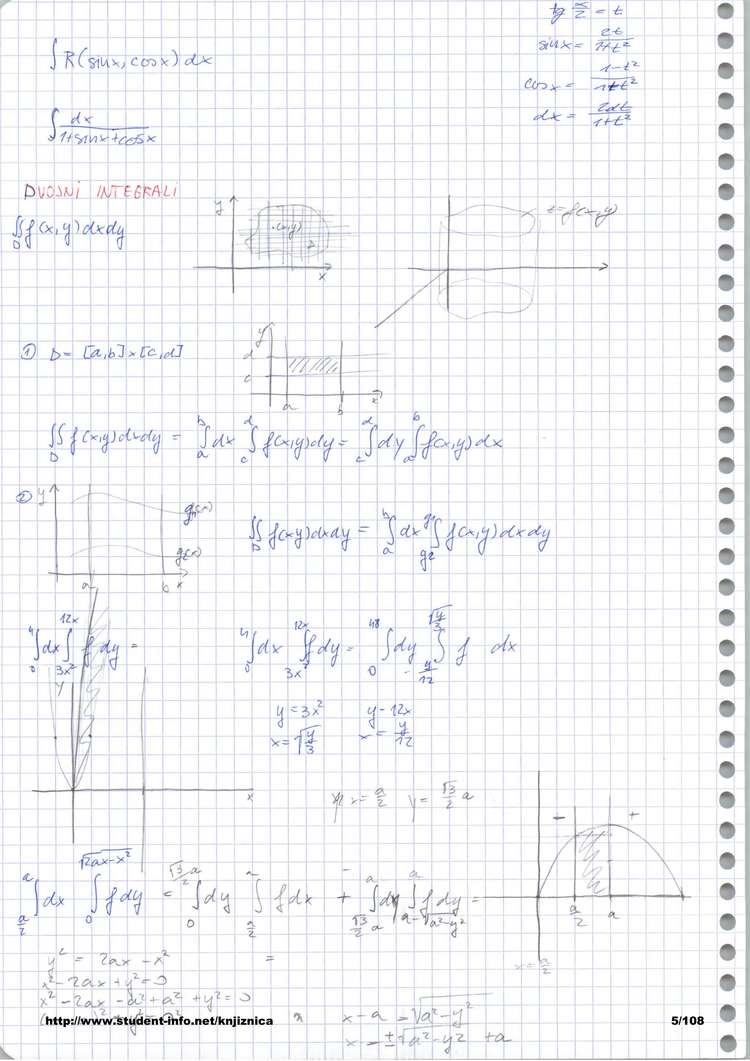 ∫ R(sinx, cosx) dx
tg x/2 = t
sinx = 2t/(1+t²)
cosx = (1-t²)/(1+t²)
dx = 2dt/(1+t²)
∫ dx/(1+sinx+cosx)
DVOJNI INTEGRALI
∬_D f(x,y) dxdy
y
(x,y)
x
z=f(x,y)
① D = [a,b]×[c,d]
y
d
c
a b x
∬_D f(x,y)dxdy = ∫_a^b dx ∫_c^d f(x,y)dy = ∫_c^d dy ∫_a^b f(x,y)dx
② y
g₁(x)
g₂(x)
a b x
∬_D f(x,y)dxdy = ∫_a^b dx ∫_{g2}^{g1} f(x,y)dxdy
∫_0^4 dx ∫_{3x²}^{12x} f dy =
∫_0^4 dx ∫_{3x²}^{12x} f dy = ∫_0^{48} dy ∫_{y/12}^{√(y/3)} f dx
y = 3x² y = 12x
x = √(y/3) x = y/12
y
x
x = a/2 y = √3/2 a
- +
a/2 a
x = a/2
∫_{a/2}^a dx ∫_0^{√(2ax-x²)} f dy = ∫_0^{√3/2 a} dy ∫_{a/2}^a f dx + ∫_{√3/2 a}^a dy ∫_{a-√(a²-y²)}^a f dy =
y² = 2ax - x² =
x² - 2ax + y² = 0
x² - 2ax - a² + a² + y² = 0
x - a = √(a²-y²)
x = ±√(a²-y²) + a
http://www.student-info.net/knjiznica
5/108